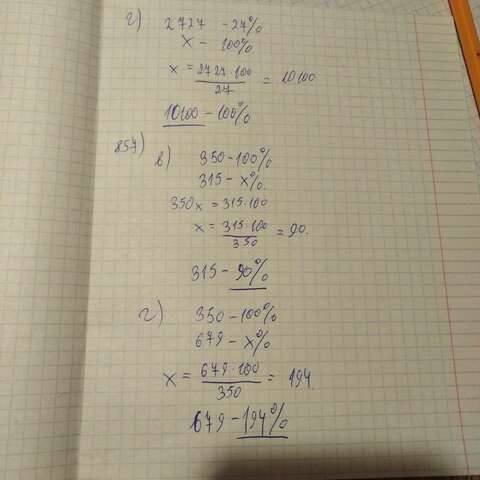 г) 2727 - 27%
x - 100%
x = 2727·100 / 27 = 10100
10100 - 100%
857)
в) 350 - 100%
315 - x%.
350x = 315·100
x = 315·100 / 350 = 90.
315 - 90%
г) 350 - 100%
679 - x%
x = 679·100 / 350 = 194
679 - 194%